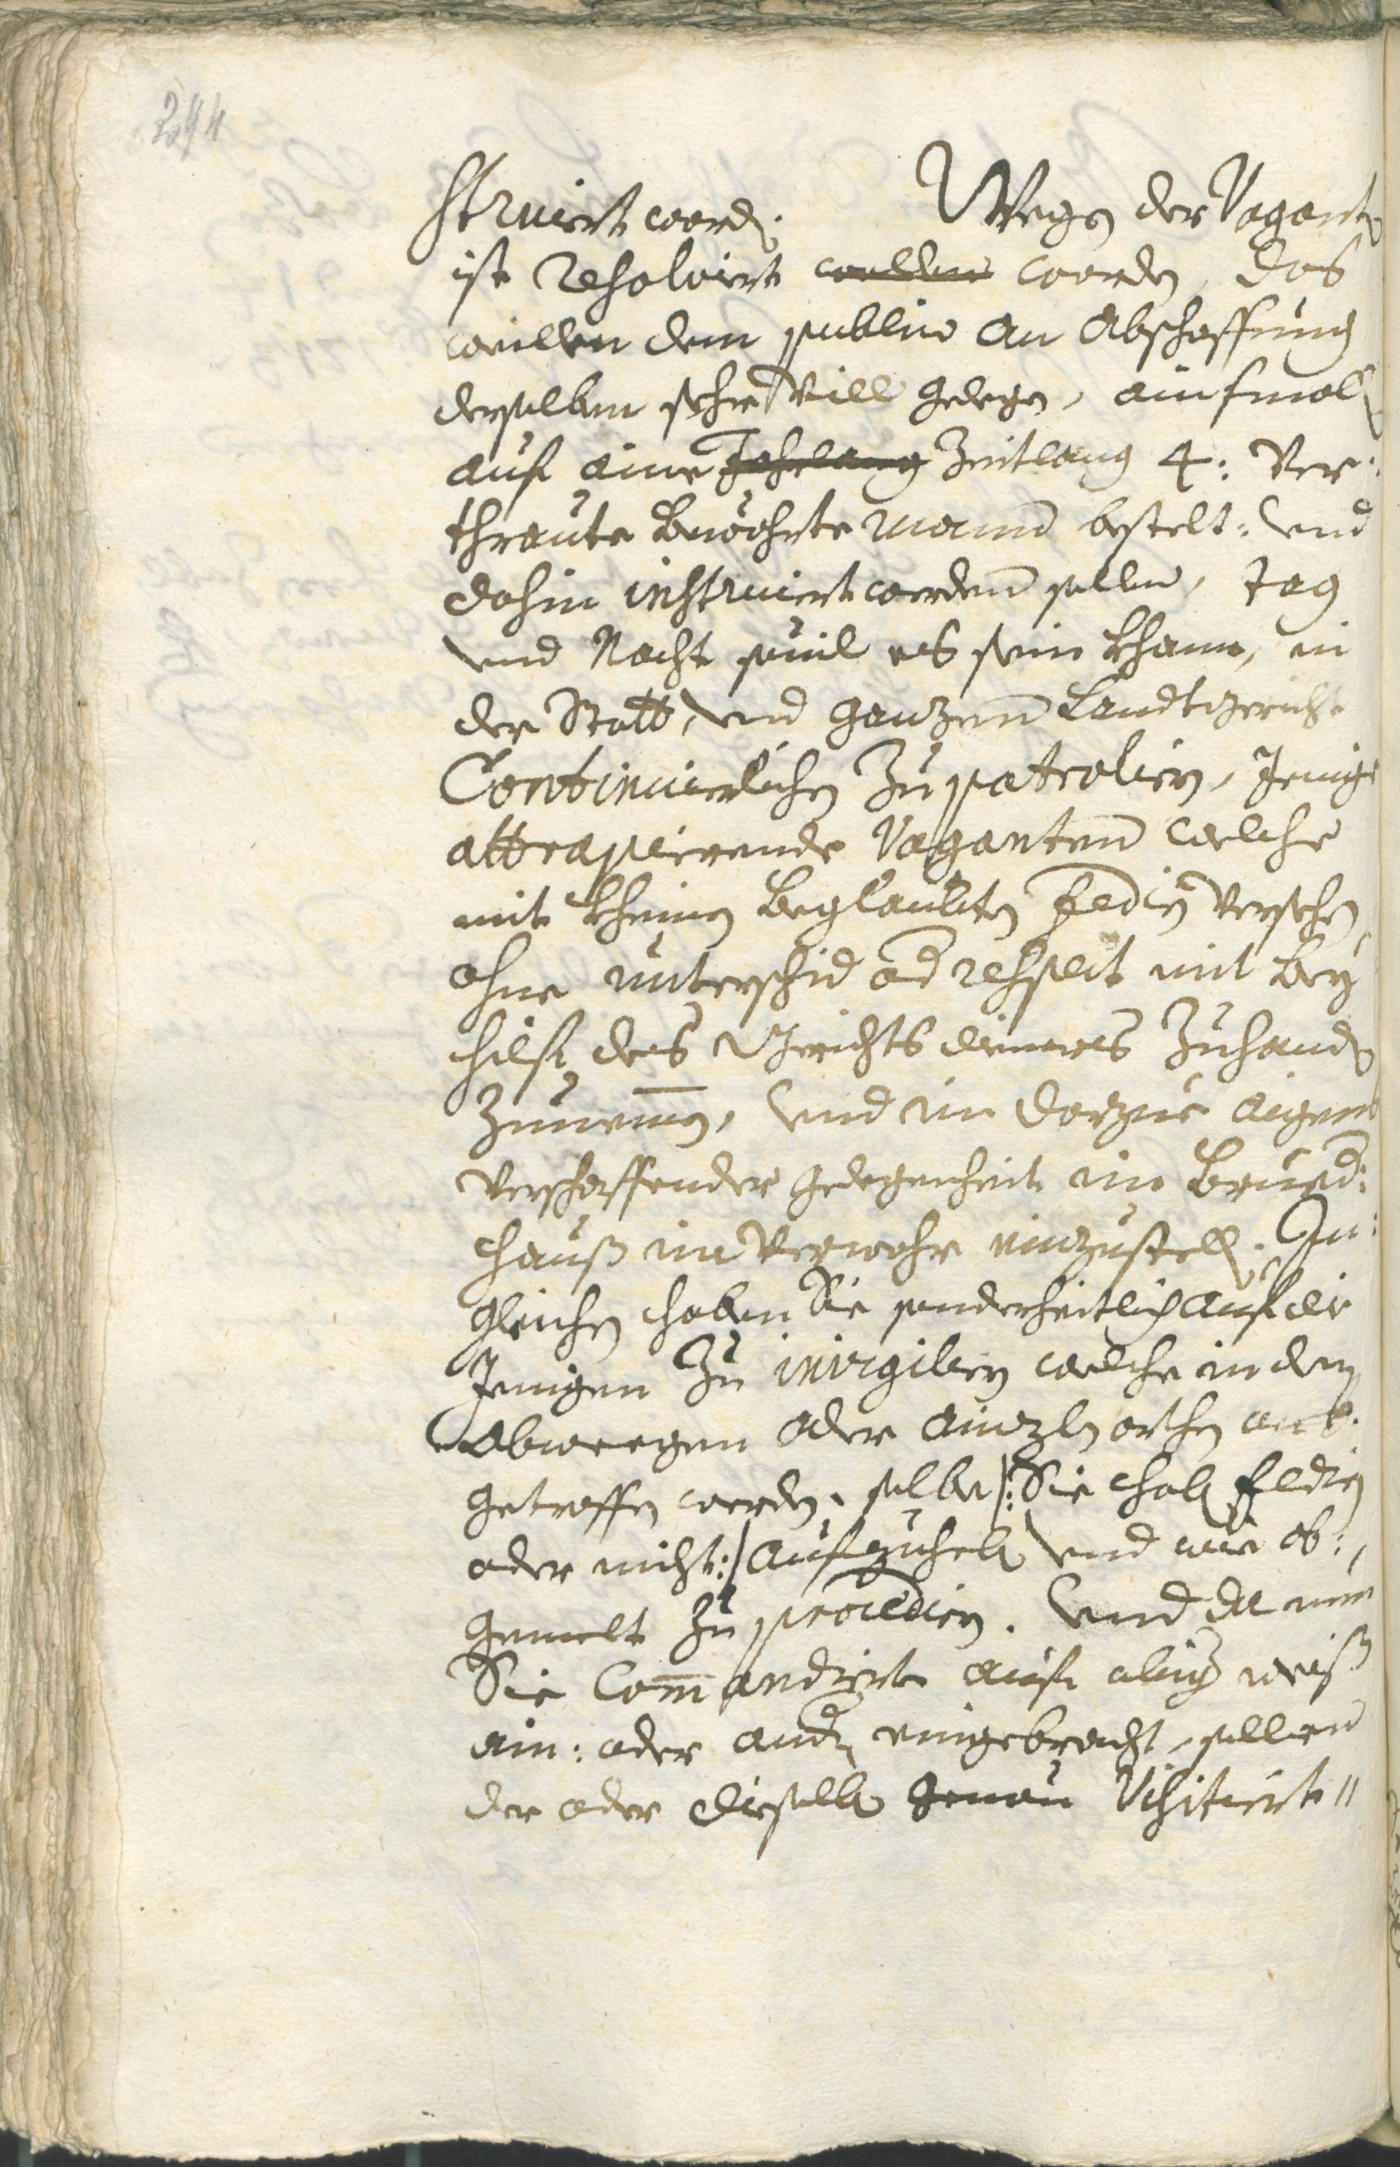 244
struiert word. Wegen der Vagant
ist resolviert wollen worden, das
weillen dem public an Abschaffung
derselben sehr vill gelegen, ainsmal
auf eine Jahrlang Zeitlang 4: ver:
thraute bewöhrte Mann bestelt: und
dahin instruiert werden sollen, Tag
und Nacht sovil es sein khann, in
der Statt, und ganzen Landtgericht
Continuierlichen zu patrolieren, Jenige
attrapierende Vaganten welche
mit kheinen beglaubten fedien versehen,
ohne unterschid od respect mit bey
hilf des Gerichts dieners zuhand
zunemen, und in darzue aigens
verschaffender gelegenheit im Brued:
hauß in verwahr einzustellen. In:
gleichen haben Sie sonderheitlich auf die
Jenigen zu invigilien welche in den
Abweegen oder ainzlen orthen
getroffen werden, selbe /: Sie haben fedien
oder nicht :/ aufzuheben und wie ob:
gemelt zu procedien. Und da nun
Sie Commandierte auf obige weiß
ain: oder ander eingebracht, sollen
der oder dieselben genau Visitiert"